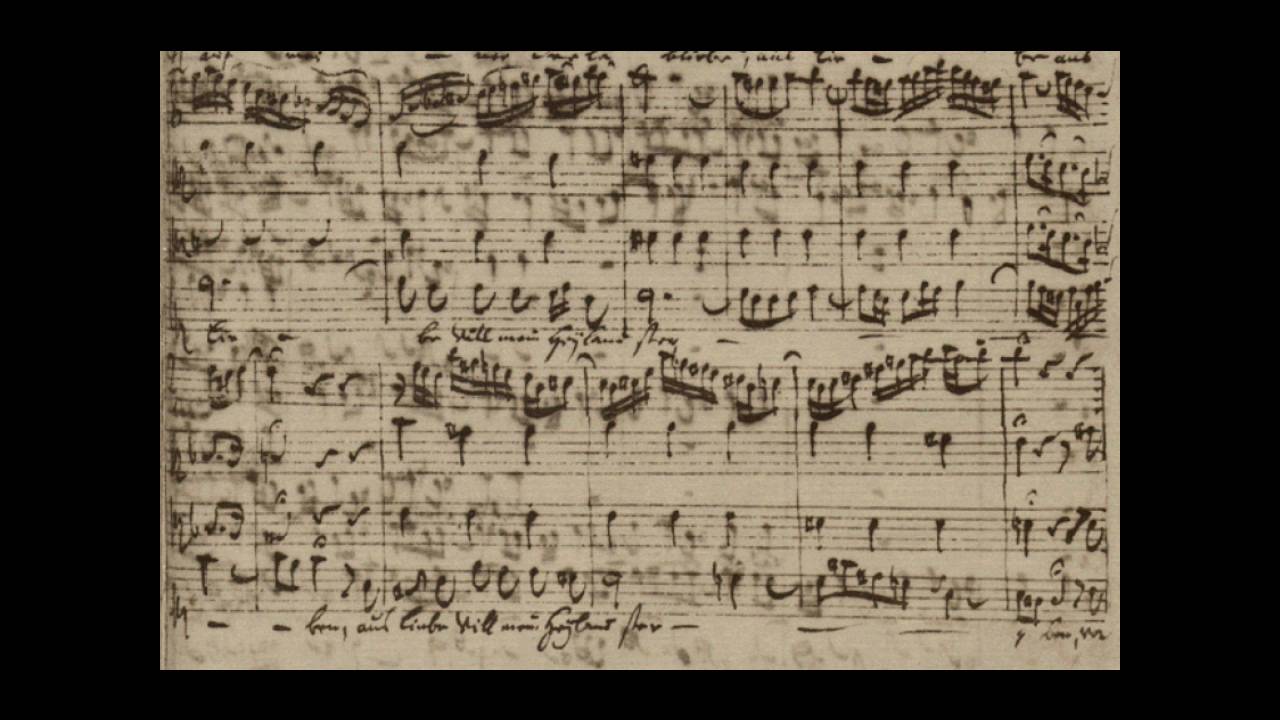 bliebe, aus lie - be aus
lie - be will mein Heyland ster -
- - ben, aus liebe will mein Heyland ster - - - ben, vor